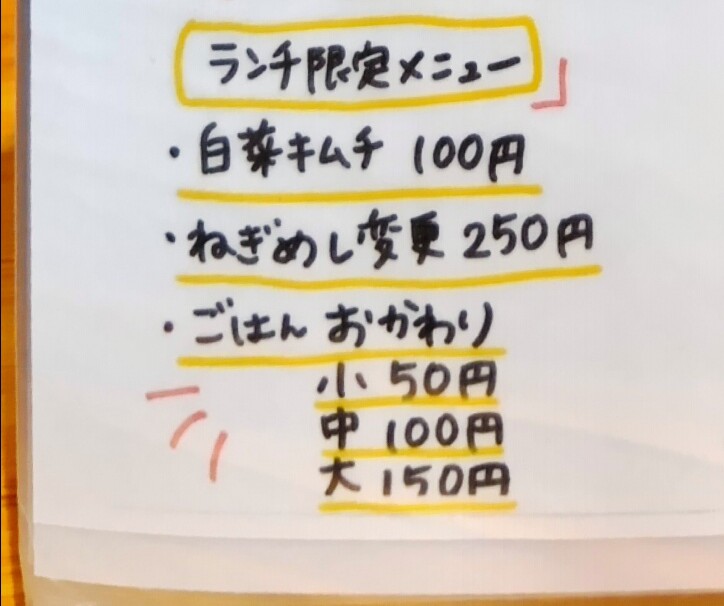 ランチ限定メニュー
・白菜キムチ 100円
・ねぎめし変更 250円
・ごはん おかわり
小 50円
中 100円
大 150円